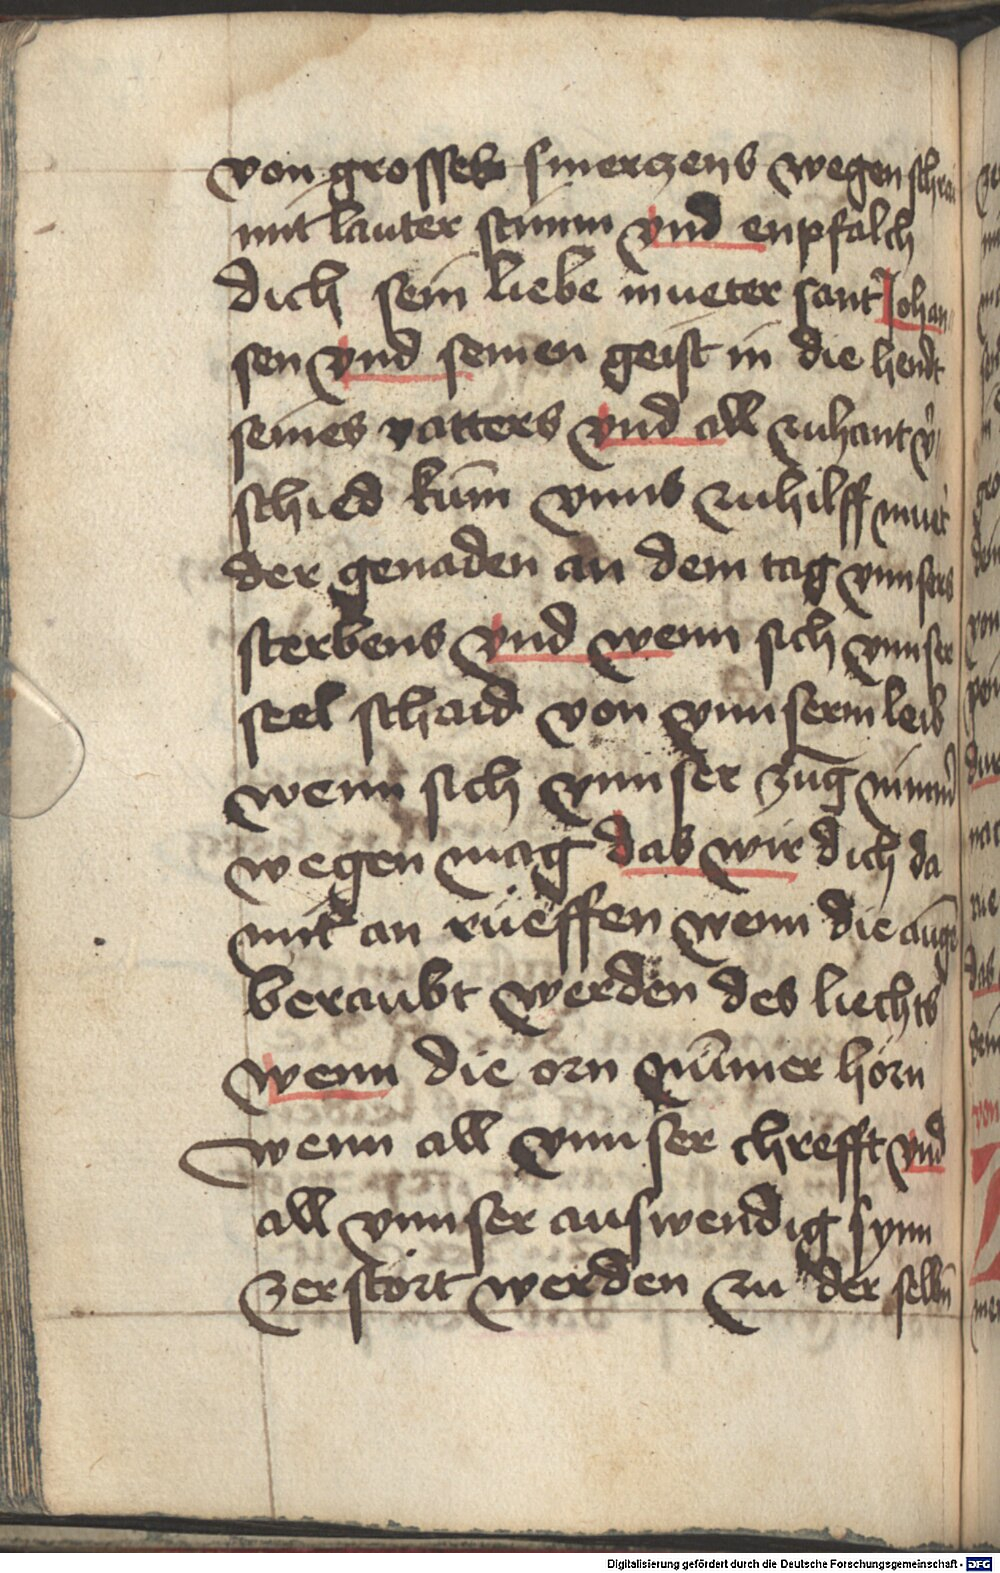 von grosses smerczens wegen schrai
mit lauter stimm vnd enpfalch
dich sein̄ liebe mueter sant Johan
sen vnd seinen geist in die hendt
seines vatters vnd all zuhant v̾
schied kum̄ vnns zuhilff muet̾
der genaden an dem tag vnnsers
sterbens vnd wenn sich vnnser
seel schaid von vnnserm leib
wenn sich vnnser zūg nimm̾
wegen mag das wir dich da
mit an rüeffen wenn die aūgē
beraubt werden des liechts
wenn die orn nūmer hörn
wenn all vnnser chrefft vnd
all vnnser auswendig synn
zerstört werden zu der selbn̄
Digitalisierung gefördert durch die Deutsche Forschungsgemeinschaft - DFG